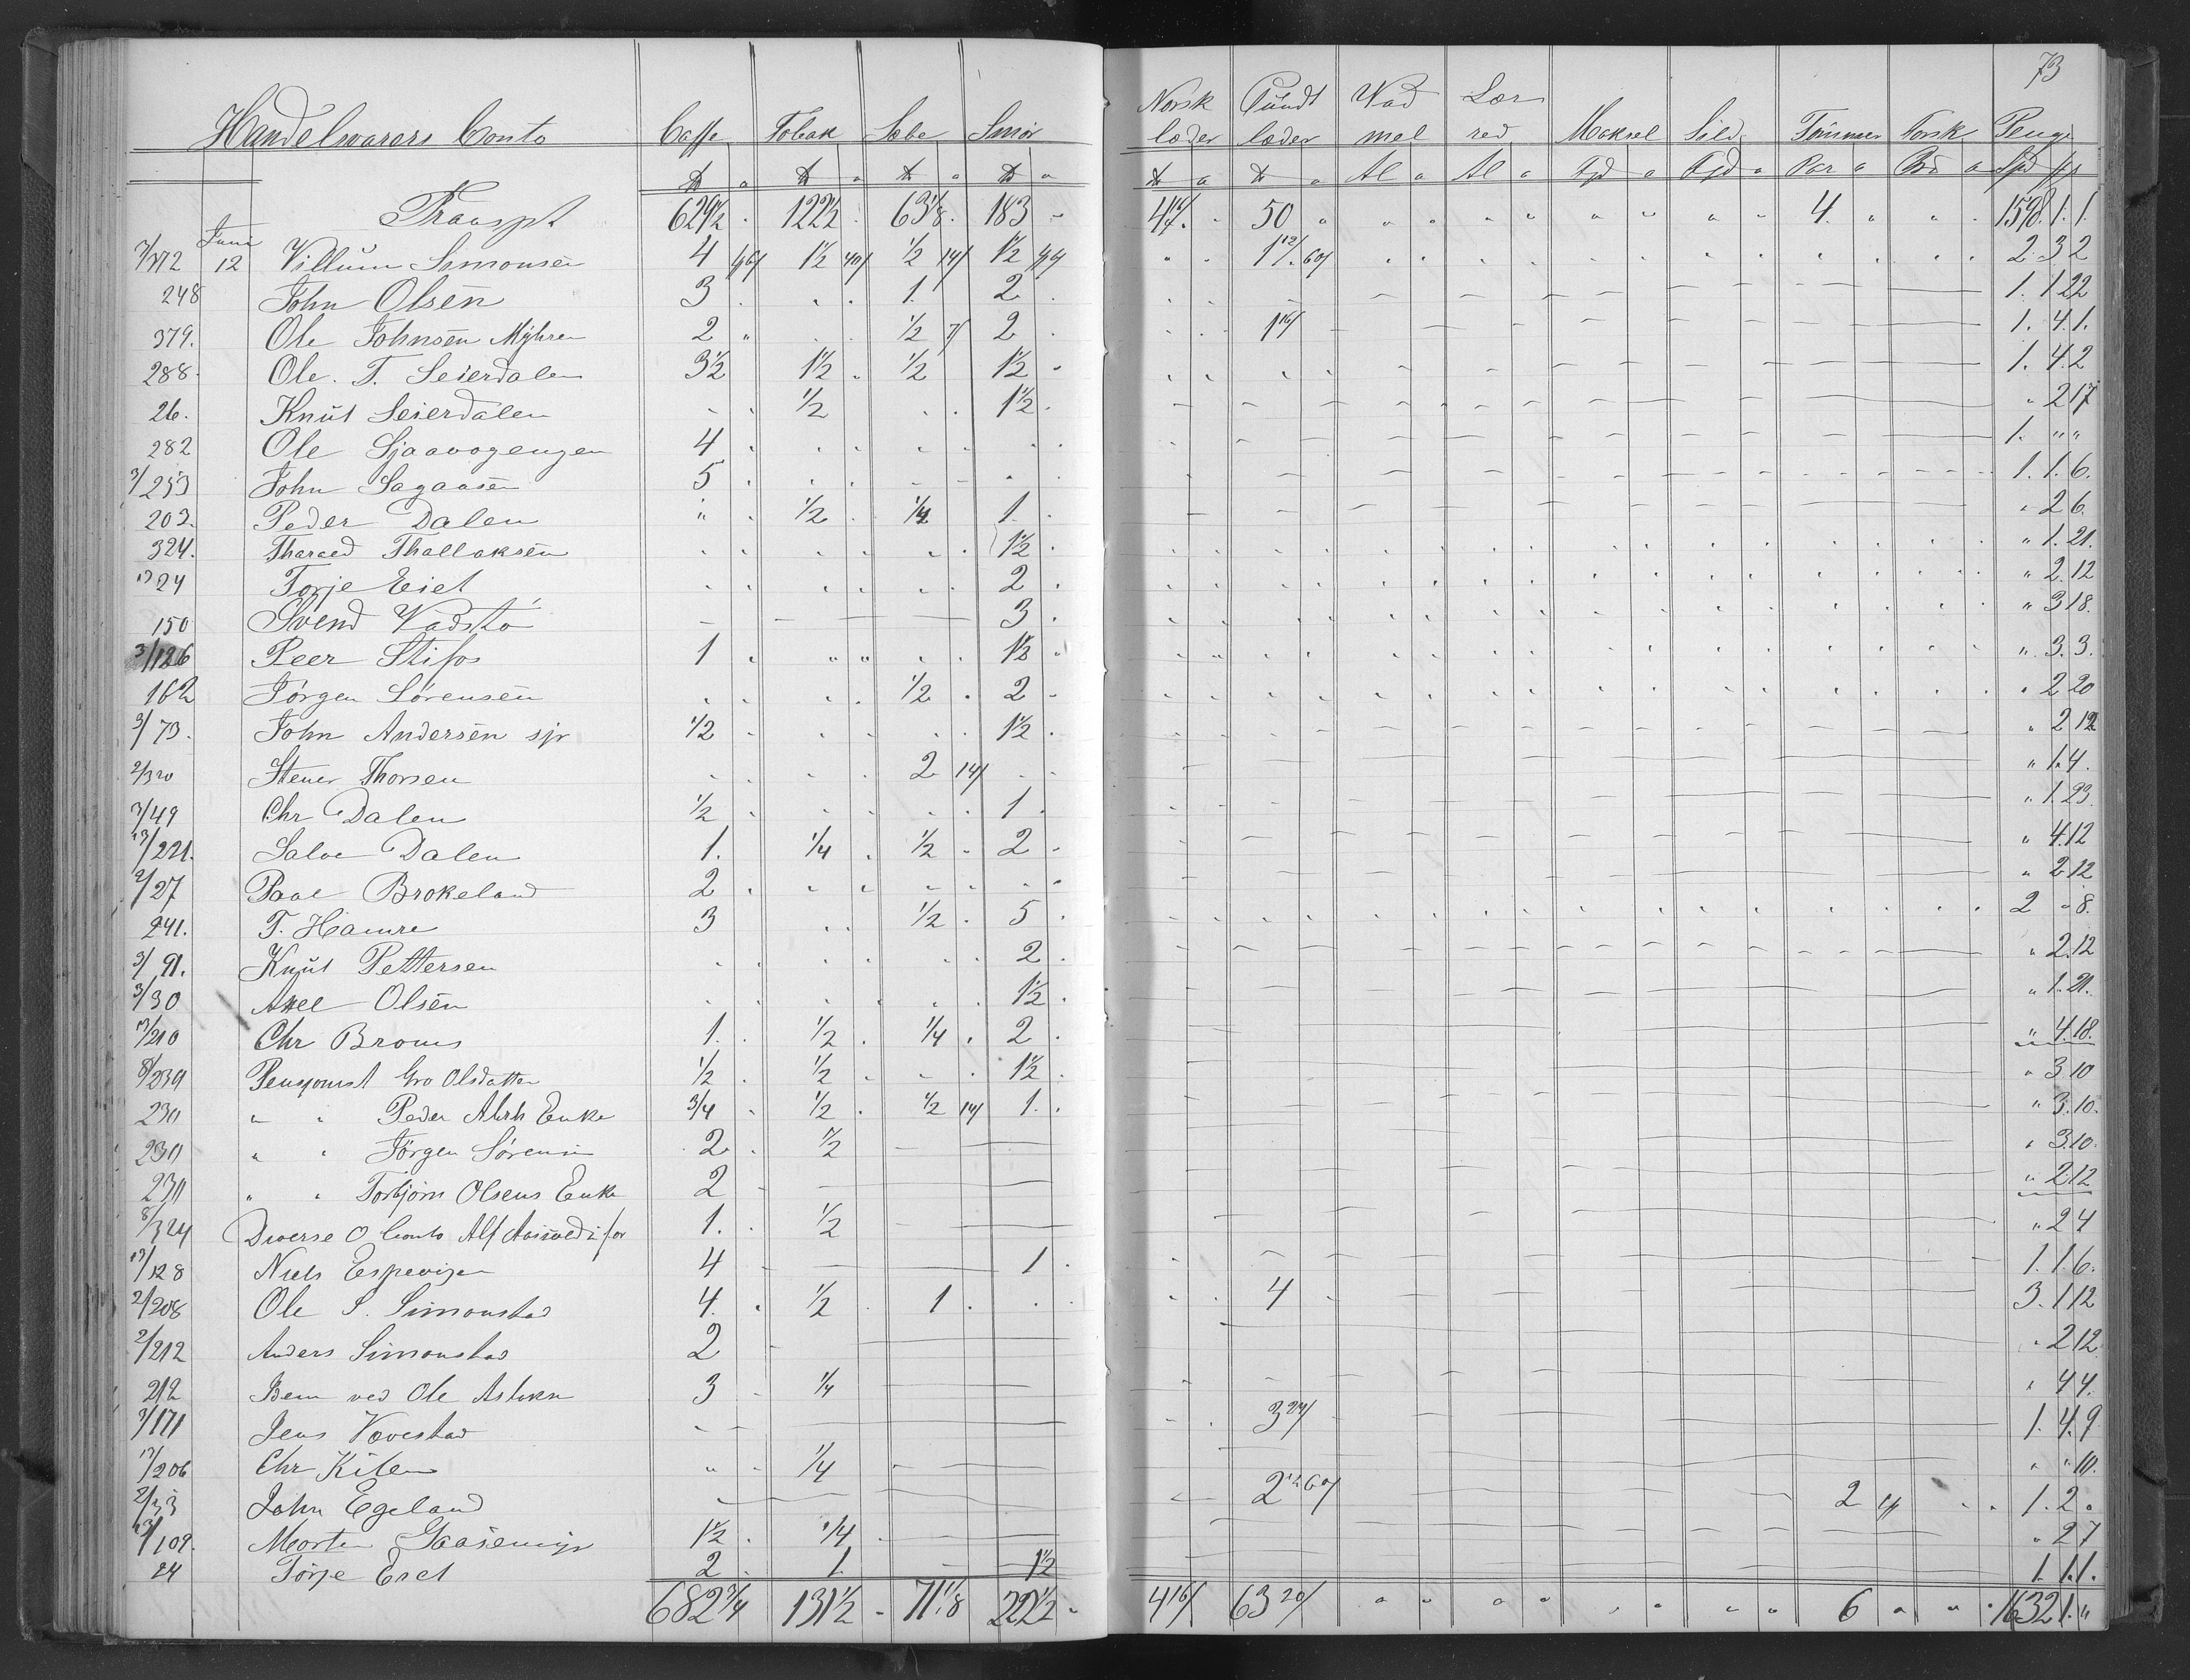 73
Handelsvarers Conto Caffe Tobak Sæbe Smør Norsk læder Pundt læder Vad mel Lær red Maksel Sild Tømmer Torsk Penge
₶ a ₶ a ₶ a ₶ a ₶ a ₶ a Al a Al a Tjd a Tjd a Par a a Spd
Transpt 629½ 122½ 63⅛ 183 - 50 " " " " " " " " 4. " " 1598.1.1.
7/372 Juni 12 Villum Simonsen 4 1½ ½ 14/ 1½ 2.3 2
248 John Olsen 3 1. 2 1. 1 22
379. Ole Johnsen Myhren 2 " ½ 7/ 2 1. 4.1.
288. Ole. T. Seierdalen 3½ 1½ ½ 1½ 1. 4.2
26. Knut Seierdalen ½ 1½ " 2 17
282 Ole Sjaavogengen 4 1. " "
3/253 John Sagaasen 5 1.1.6.
203. Peder Dalen " ½ ¼ 1. " 2 6.
324. Tharaed Thallaksen 1½ " 1.21.
24 Torje Eiet 2 " 2.12
150 Svend Vadsto 3 " 3 18.
3/126 Peer Stifos 1 " " 1½ " 3.3.
162 Jörgen Sørensen ½ 2 " 2 20
3/73. John Andersen sjr ½ 1½ " 2 12
2/320 Stener Thorsen 2 14/ " 1.4.
3/49 Chr Dalen ½ 1 " 1 23.
13/221. Salve Dalen 1. ¼ ½ 2 " 4.12
2/27 Paal Brokeland 2 " 2 12
241. T. Hamre 3 ½ 5 2 " 8.
3/91. Knut Pettersen 2 " 2.12
3/30 Axel Olsen 1½ " 1.21.
13/210 Chr Broms 1. ½ ¼ 2 " 4.18.
8/239 Gro Olsdatter ½ ½ 1½ " 3 10
230 " " Peder Enke ¾ ½ ½ 14/ 1. " 3.10.
230 " " Jörgen Sørensen 2 ½ " 3.10.
230 " " Torbjørn Olsens Enke 2 " 2.12
8/324 Diverse Conto Alf for 1. ½ " 2 4
13/128 Niels Espevigen 4 1 1.1.6.
2/208 Ole S. Simonstad 4. ½ 1 4 3.1 12
2/212 Anders Simonstad 2 " 2 12
212 ved Ole Aslaksn 3 ¼ " 4 4.
3/171 Jens Vævestad 3 24/ 1. 4.9
13/206 Chr Kilen " ¼ " " 10.
2/33 John Egeland 2 1.2.
13/109. Morten Gaasemyr 1½ ¼ " 2 7
24 Torje Eiet 2 1 1½ 1 1.1.
682¾ 131½ 71⅛ 222½ 4 16/ 63 20/ " " " " " " " " 6 " " 1632 1. "